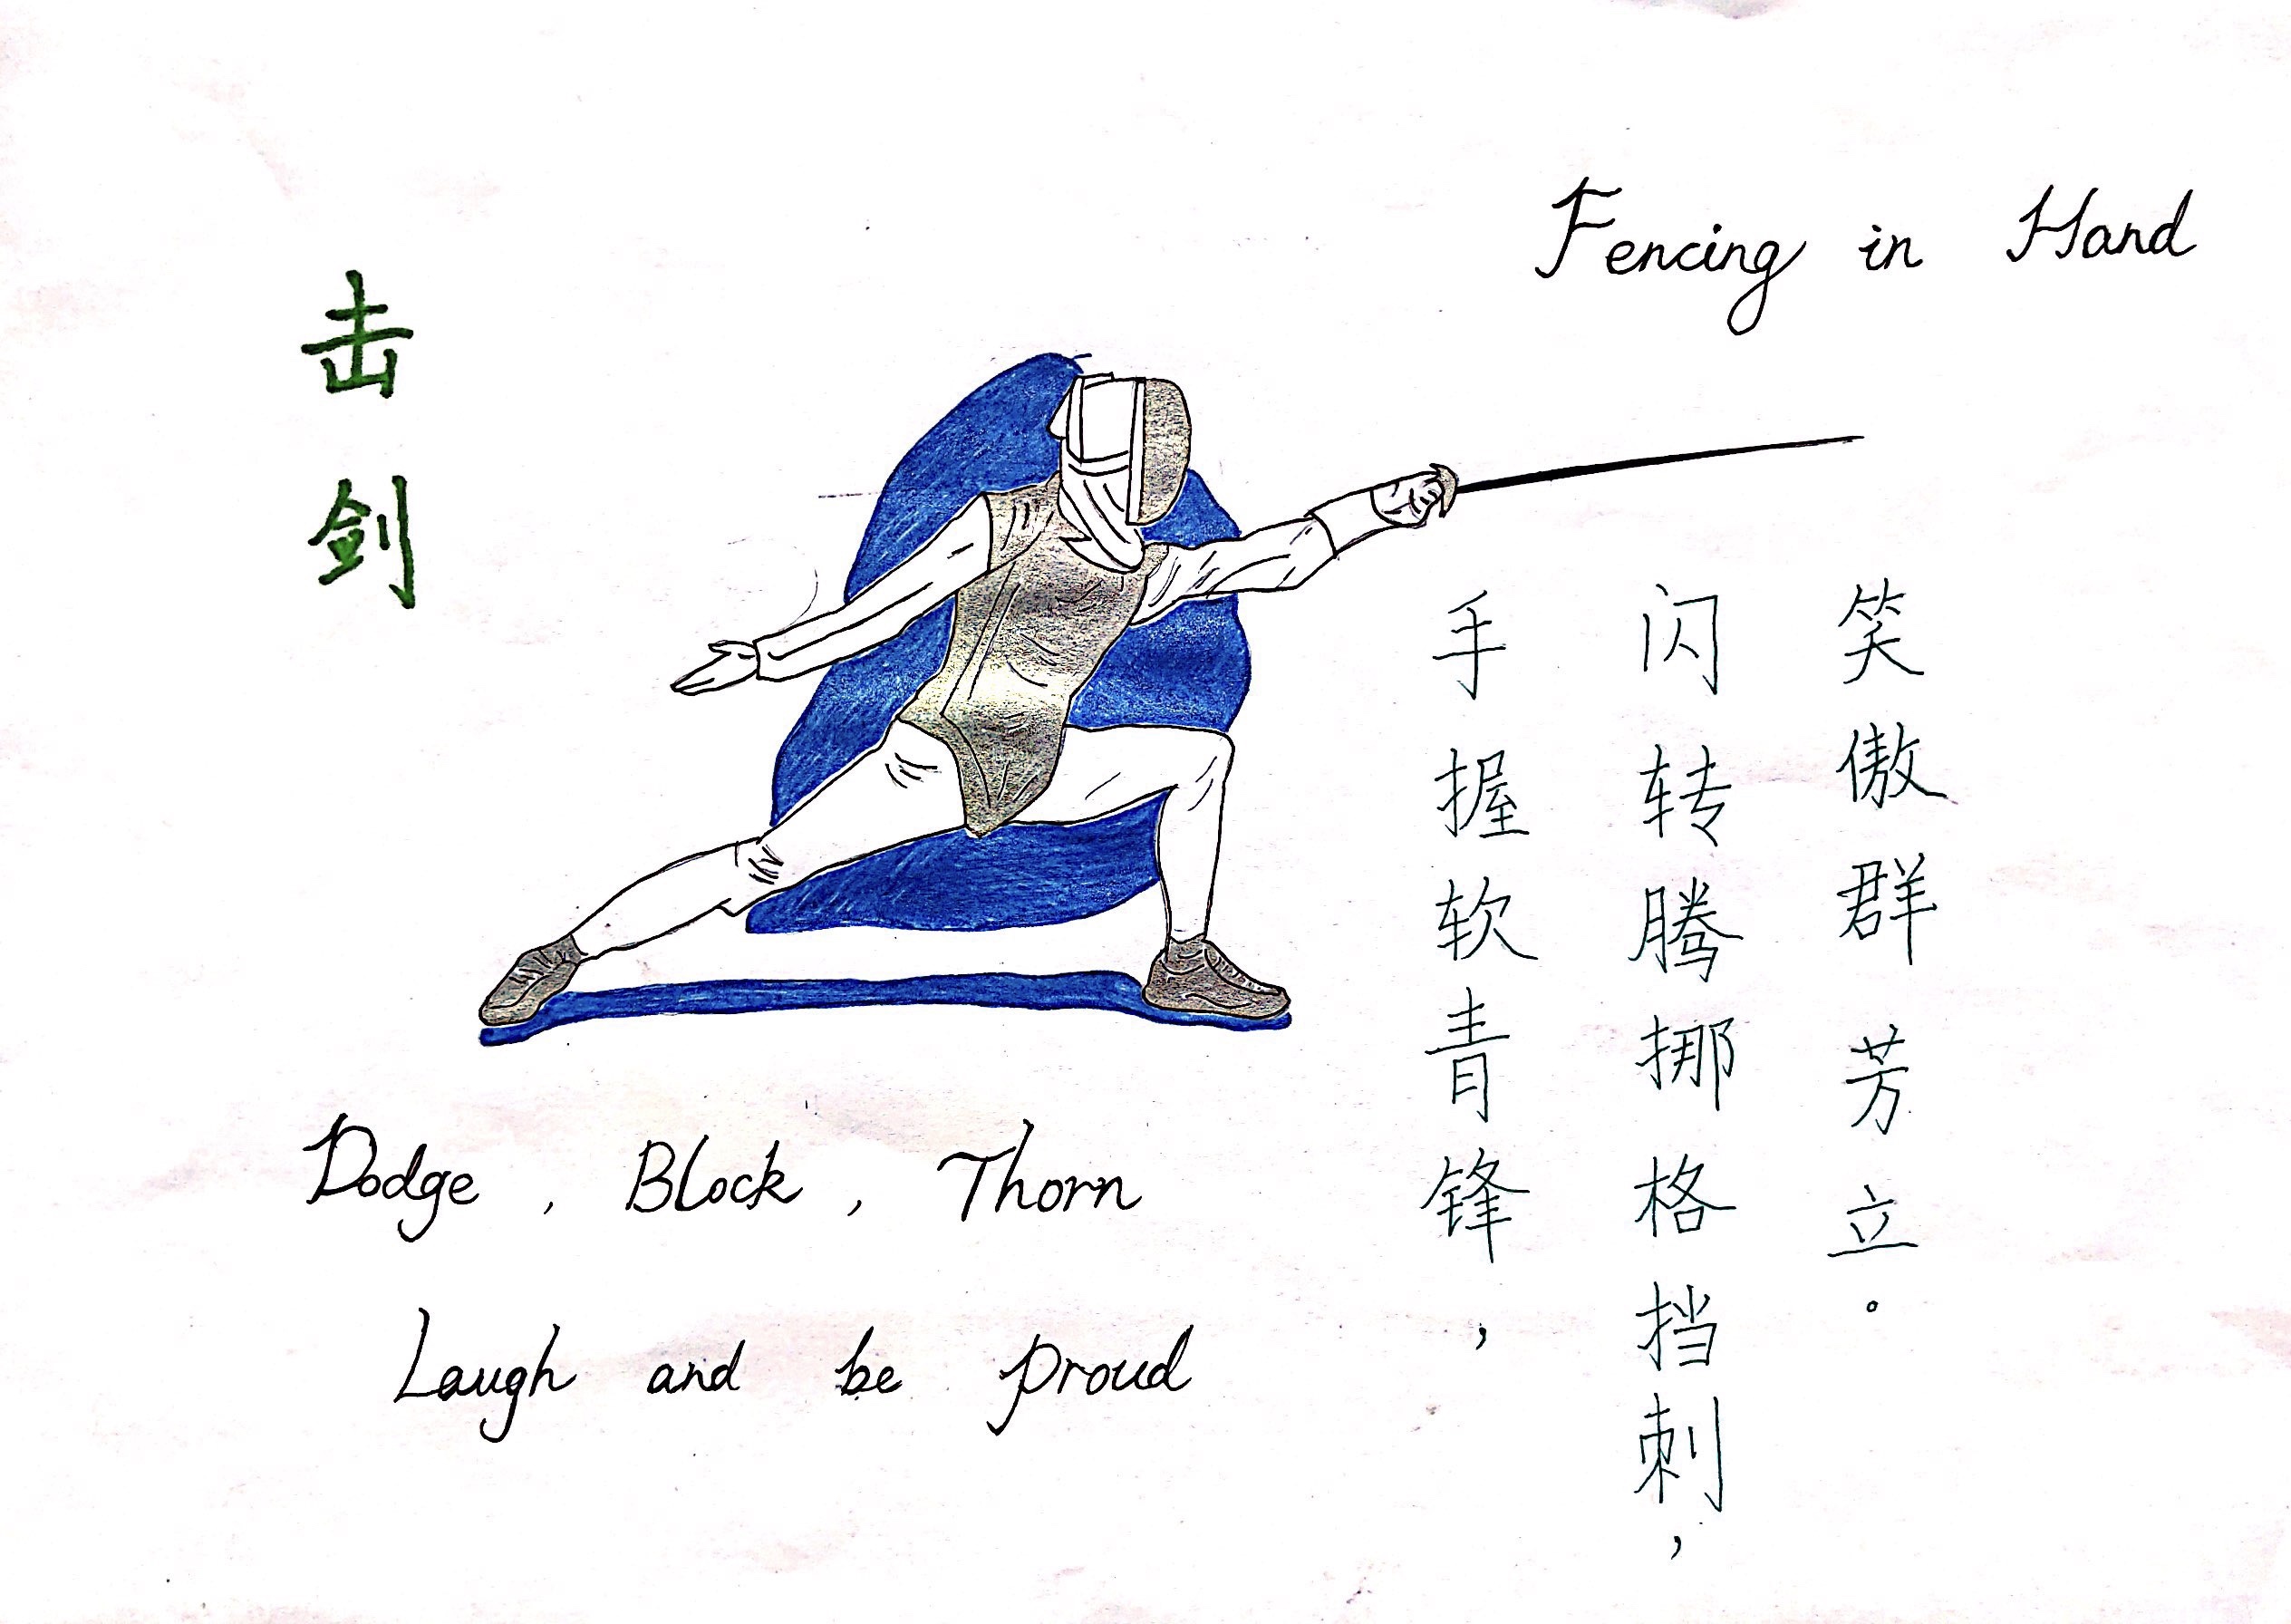 击剑
Fencing in Hand
手握软青锋，
闪转腾挪格挡刺，
笑傲群芳立。
Dodge, Block, Thorn
Laugh and be proud